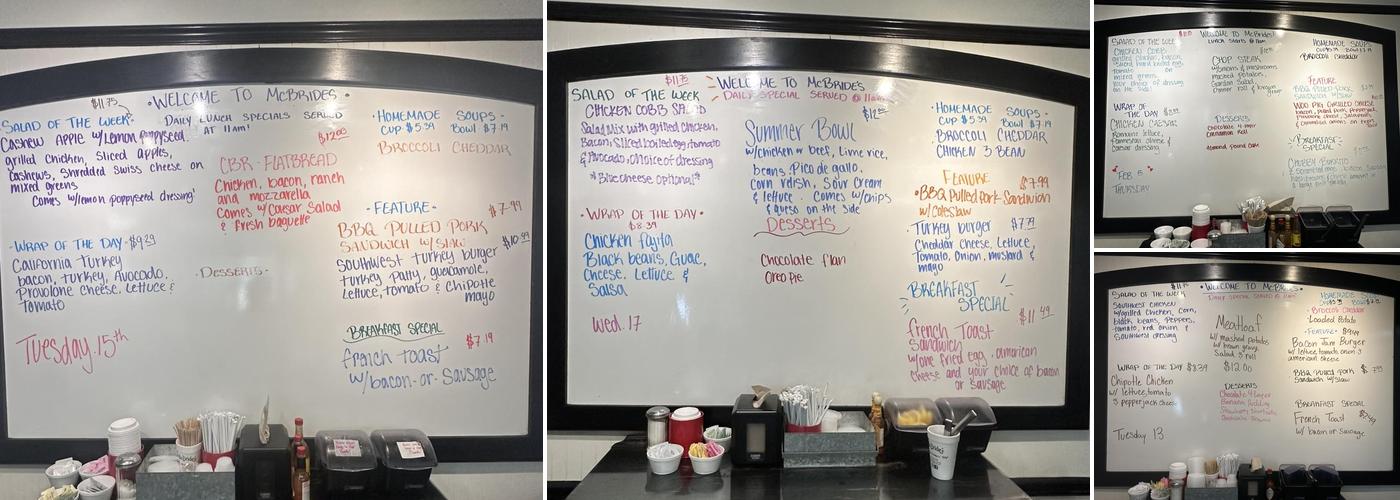 $11.75
• WELCOME TO McBRIDES •
SALAD OF THE WEEK
DAILY LUNCH SPECIALS SERVED
AT 11am!
Cashew Apple w/Lemon Poppyseed.
grilled Chicken, Sliced apples,
Cashews, Shredded Swiss cheese on
mixed greens
Comes w/lemon poppyseed dressing!
$12.00
CBR - FLATBREAD
Chicken, bacon, ranch
and mozzarella
Comes w/Caesar Salad
& fresh baguette
• HOMEMADE SOUPS •
CUP $5.39 BOWL $7.19
BROCCOLI CHEDDAR
• FEATURE •
$7.99
BBQ PULLED PORK
SANDWICH W/SLAW
$10.99
Southwest turkey burger
turkey patty, guacamole,
Lettuce, tomato & Chipotle
mayo
• WRAP OF THE DAY • $9.29
California Turkey
bacon, turkey, Avocado,
Provolone cheese, Lettuce &
Tomato
• DESSERTS •
Tuesday 15th
BREAKFAST SPECIAL
$7.19
french toast
w/bacon - or - Sausage
$11.75
WELCOME TO McBRIDES
DAILY SPECIAL SERVED @ 11am
SALAD OF THE WEEK
CHICKEN COBB SALAD
Salad Mix with grilled chicken,
Bacon, Sliced boiled egg, tomato
& Avocado, choice of dressing
* Blue cheese optional *
Summer Bowl
w/chicken or beef, Lime rice,
beans, Pico de gallo,
corn relish, Sour Cream
& lettuce. Comes w/chips
& queso on the side
• HOMEMADE SOUPS •
CUP $5.39 BOWL $7.19
• BROCCOLI CHEDDAR
• CHICKEN 3 BEAN
FEATURE
$7.99
• BBQ Pulled Pork Sandwich
w/Coleslaw
• Turkey burger $7.79
Cheddar Cheese, Lettuce,
Tomato, Onion, mustard &
mayo
• WRAP OF THE DAY •
$8.39
Chicken fajita
Black beans, Guac,
Cheese, Lettuce &
Salsa
Desserts
Chocolate flan
Oreo Pie
Wed. 17
BREAKFAST
SPECIAL
$11.49
french Toast
Sandwich
w/one fried egg, american
cheese and your choice of bacon
or sausage
WELCOME TO McBRIDES
SALAD OF THE WEEK
CHICKEN COBB
grilled chicken, bacon,
sliced hard boiled egg,
tomato
mixed greens
your choice of dressing
on the side!
CHOP STEAK
w/onions & mushrooms
mashed potatoes,
Garden Salad,
HOMEMADE SOUPS
BROCCOLI CHEDDAR
FEATURE
BBQ PULLED PORK
SANDWICH W/SLAW
WRAP OF
THE DAY
CHICKEN CAESAR
romaine lettuce,
Parmesan cheese &
Caesar dressing
DESSERTS
Chocolate 4 layer
Cinnamon Roll
Almond Pound Cake
BREAKFAST
SPECIAL
FEB 5
THURSDAY
$11.75
• WELCOME TO McBRIDES •
SALAD OF THE WEEK
DAILY SPECIAL SERVED @ 11am
SOUTHWEST CHICKEN
w/grilled Chicken, Corn,
black beans, Peppers,
tomato, red onion &
Southwest dressing
Meatloaf
w/ mashed potatoes
w/ brown gravy
Salad & roll
$12.00
• Broccoli Cheddar
• Loaded Potato
• FEATURE • $9.49
Bacon Jam Burger
w/ lettuce, tomato, onion &
american cheese
BBQ Pulled Pork $7.99
Sandwich w/Slaw
WRAP OF THE DAY $8.39
Chipotle Chicken
w/ lettuce, tomato
& pepperjack cheese
DESSERTS
Chocolate 4 layer
Banana Pudding
Strawberry Shortcake
BREAKFAST SPECIAL
French Toast
w/ bacon or sausage
Tuesday 13